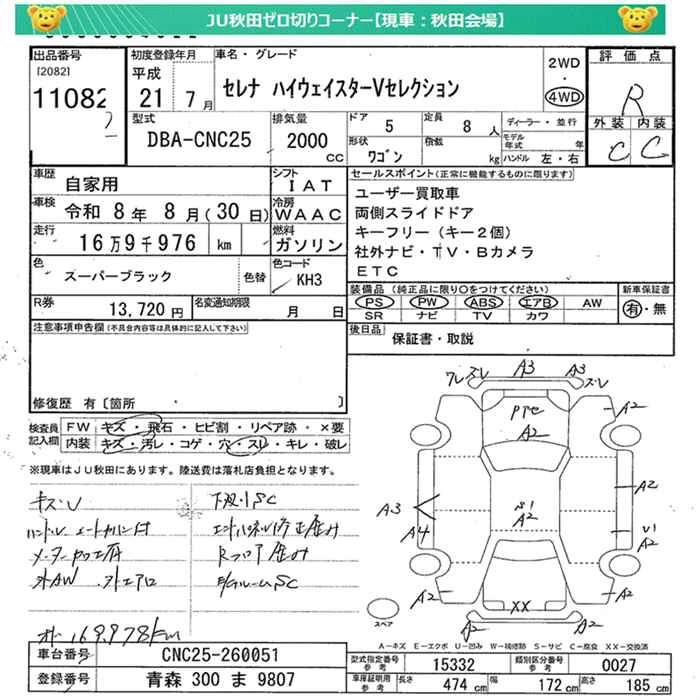 JU秋田ゼロ切りコーナー【現車：秋田会場】
出品番号
[2082]
11082
初度登録年月
平成
21年7月
車名・グレード
セレナ ハイウェイスターVセレクション
2WD
・
4WD
評価点
R
外装 内装
C C
型式
DBA-CNC25
排気量
2000
CC
ドア
5
定員
8人
形状
ワゴン
積載
kg
ディーラー・並行
モデル年式 年
ハンドル 左・右
車歴
自家用
シフト
IAT
車検
令和 8年 8月(30日)
冷房
WAAC
走行
16万9千976 km
燃料
ガソリン
色
スーパーブラック
色替
色コード
KH3
R券
13,720円
名変通知期限
月 日
セールスポイント(正常に機能するものに限ります)
ユーザー買取車
両側スライドドア
キーフリー（キー2個）
社外ナビ・TV・Bカメラ
ETC
装備品（純正品に限り○をつけてください）
PS PW ABS エアB AW
SR ナビ TV カワ
新車保証書
有・無
後日品
保証書・取説
注意事項申告欄(不具合内容等は具体的に記入して下さい)
修復歴 有〔箇所 〕
検査員記入欄
FW キズ・飛石・ヒビ割・リペア跡・×要
内装 キズ・汚レ・コゲ・穴・スレ・キレ・破レ
※現車はJU秋田にあります。陸送費は落札店負担となります。
キズ・U
下廻りSC
Rフロア歪み
外AW
169,978km
ズレ A3 A3 ズレ
A2
A2
A2
A3
A4
S1
A2
U1
A2
A2
XX
A2
A2
スペア
A－キズ E－エクボ U－凹み W－補修跡 S－サビ C－腐食 XX－交換済
車台番号
CNC25-260051
登録番号
青森 300 ま 9807
型式指定番号
参考
15332
類別区分番号
参考
0027
車庫証明用
参考
長さ
474 cm
幅
172 cm
高さ
185 cm